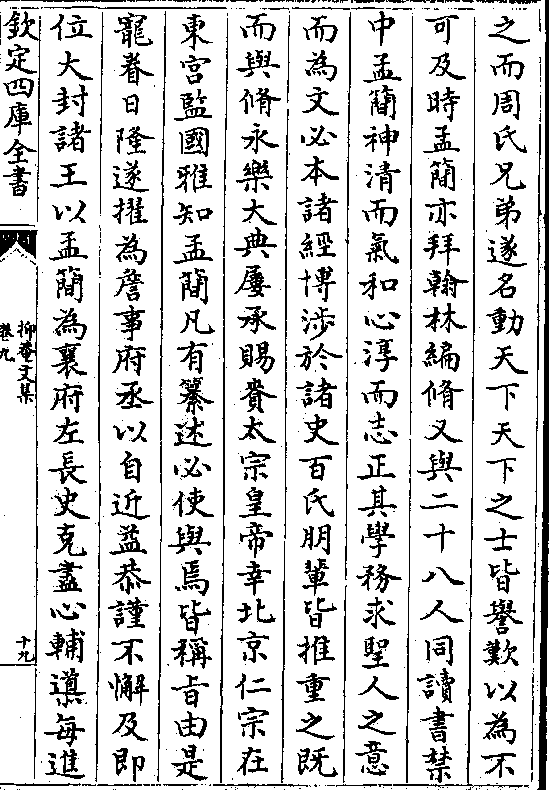 之而周氏兄弟遂名動天下天下之士皆譽歎以為不
可及時孟簡亦拜翰林編脩又與二十八人同讀書禁
中孟簡神清而氣和心淳而志正其學務求聖人之意
而為文必本諸經博涉於諸史百氏朋輩皆推重之既
而與脩永樂大典屢承賜賚太宗皇帝幸北京仁宗在
東宮監國雅知孟簡凡有纂述必使與焉皆稱旨由是
寵眷日隆遂擢為詹事府丞以自近益恭謹不懈及即
位大封諸王以孟簡為襄府左長史克盡心輔導每進
欽定四庫全書
抑菴文集
卷九
十九